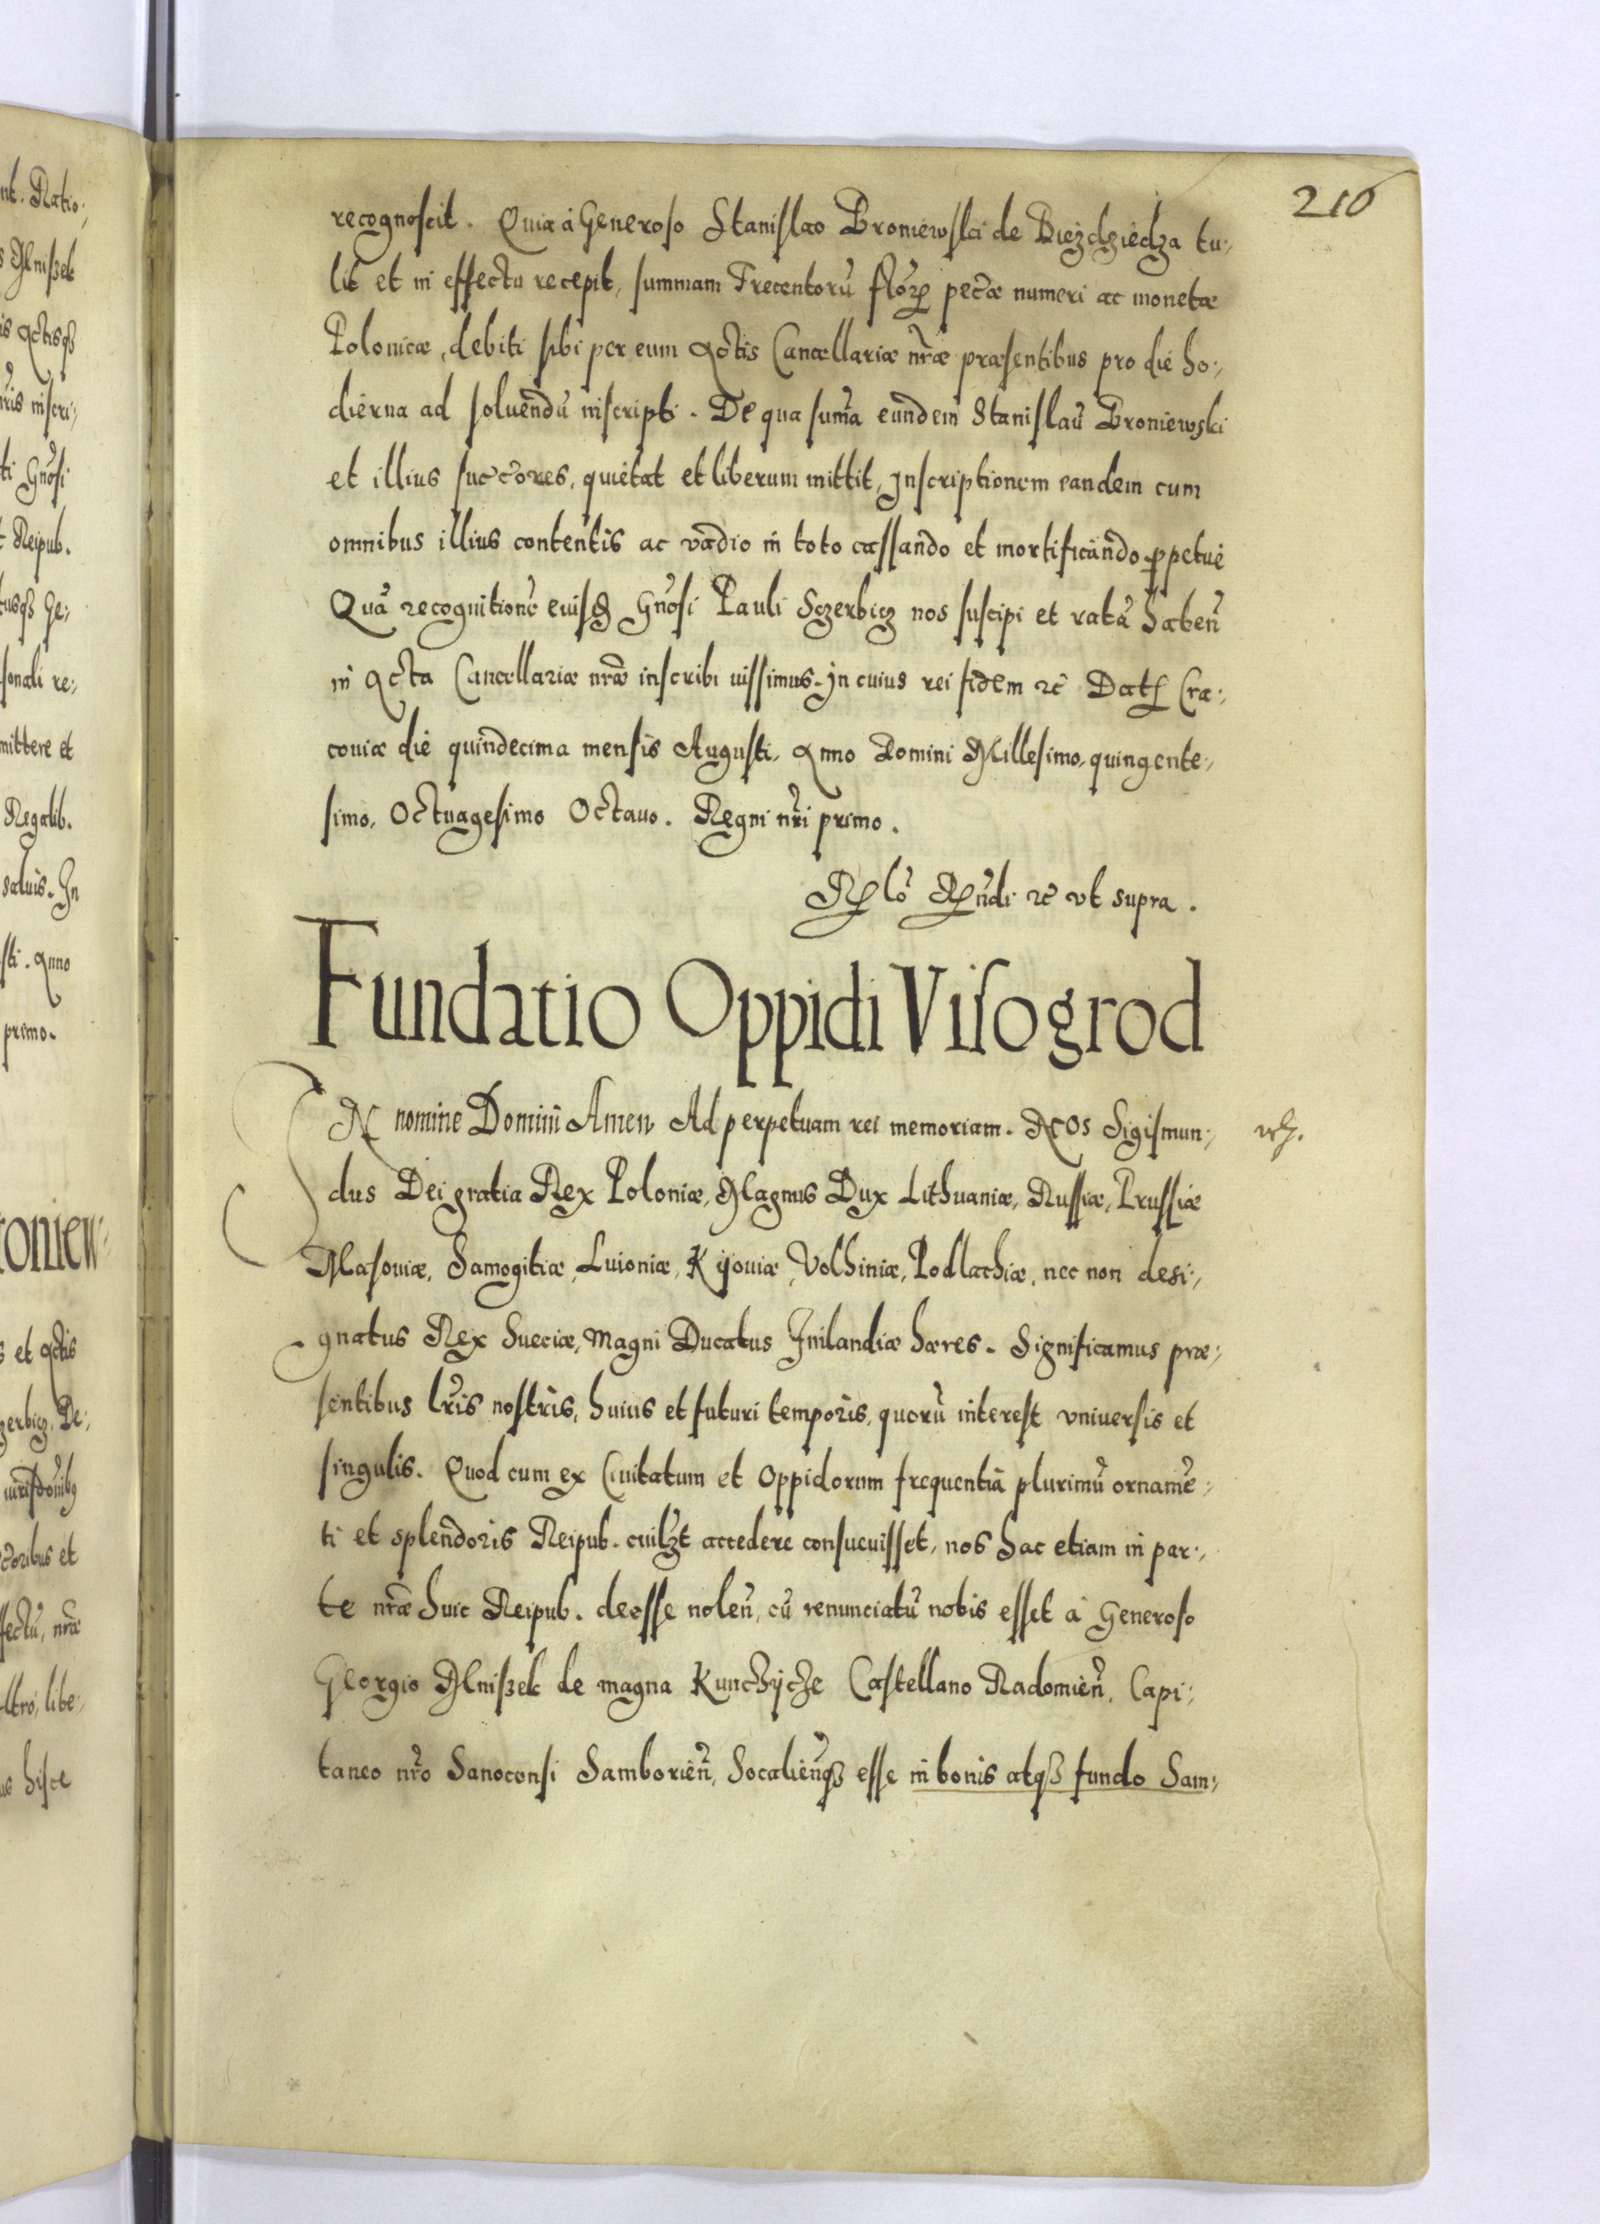 210
recognoscit. Quia á Generoso Stanislao Broniewski de Bieżdziedza tu-
lit et in effectu recepit, summam Trecentorū flōr pecæ numeri ac monetæ
Polonicæ, debiti sibi per eum Actis Cancellariæ nr̄æ præsentibus pro die ho-
dierna ad soluendū inscripti. De qua sum̄a eundem Stanislaū Broniewski
et illius succōres, quietat et liberum mittit, Inscriptionem eandem cum
omnibus illius contentis ac vadio in toto cassando et mortificando ꝑpetuè
Quā recognitionē eiusd Gnōsi Pauli Sczerbicz nos suscipi et ratā haben̄
in Acta Cancellariæ nr̄æ inscribi iussimus. In cuius rei fidem ꝛc̄ Dat Cra-
couiæ die quindecima mensis Augusti, Anno Domini Millesimo, quingente-
simo, Octuagesimo Octauo. Regni nr̄i primo.
Rlō Rndi ꝛc̄ vt supra.
Fundatio Oppidi Viſogrod
IN nomine Domini Amen Ad perpetuam rei memoriam. NOS Sigismun-
dus Dei gratia Rex Poloniæ, Magnus Dux Lithuaniæ, Russiæ, Prussiæ
Masouiæ, Samogitiæ, Liuoniæ, Kijouiæ, Volhiniæ, Podlachiæ, nec non desi-
gnatus Rex Sueciæ, Magni Ducatus Finlandiæ hæres. Significamus præ-
sentibus lr̄is nostris, huius et futuri temporis, quorū interest vniuersis et
singulis. Quod cum ex Ciuitatum et Oppidorum frequentia plurimū orname̅-
ti et splendoris Reipub. cuilzt accedere consueuisset, nos hac etiam in par-
te nr̄æ huic Reipub. deesse nolen̄, cū renunciatū nobis esset á Generoso
Georgio Mniszek de magna Kunczycze Castellano Radomien̄, Capi-
taneo nr̄o Sanocensi Samborien̄, Socalien̄qȝ esse in bonis atqȝ fundo Sam-